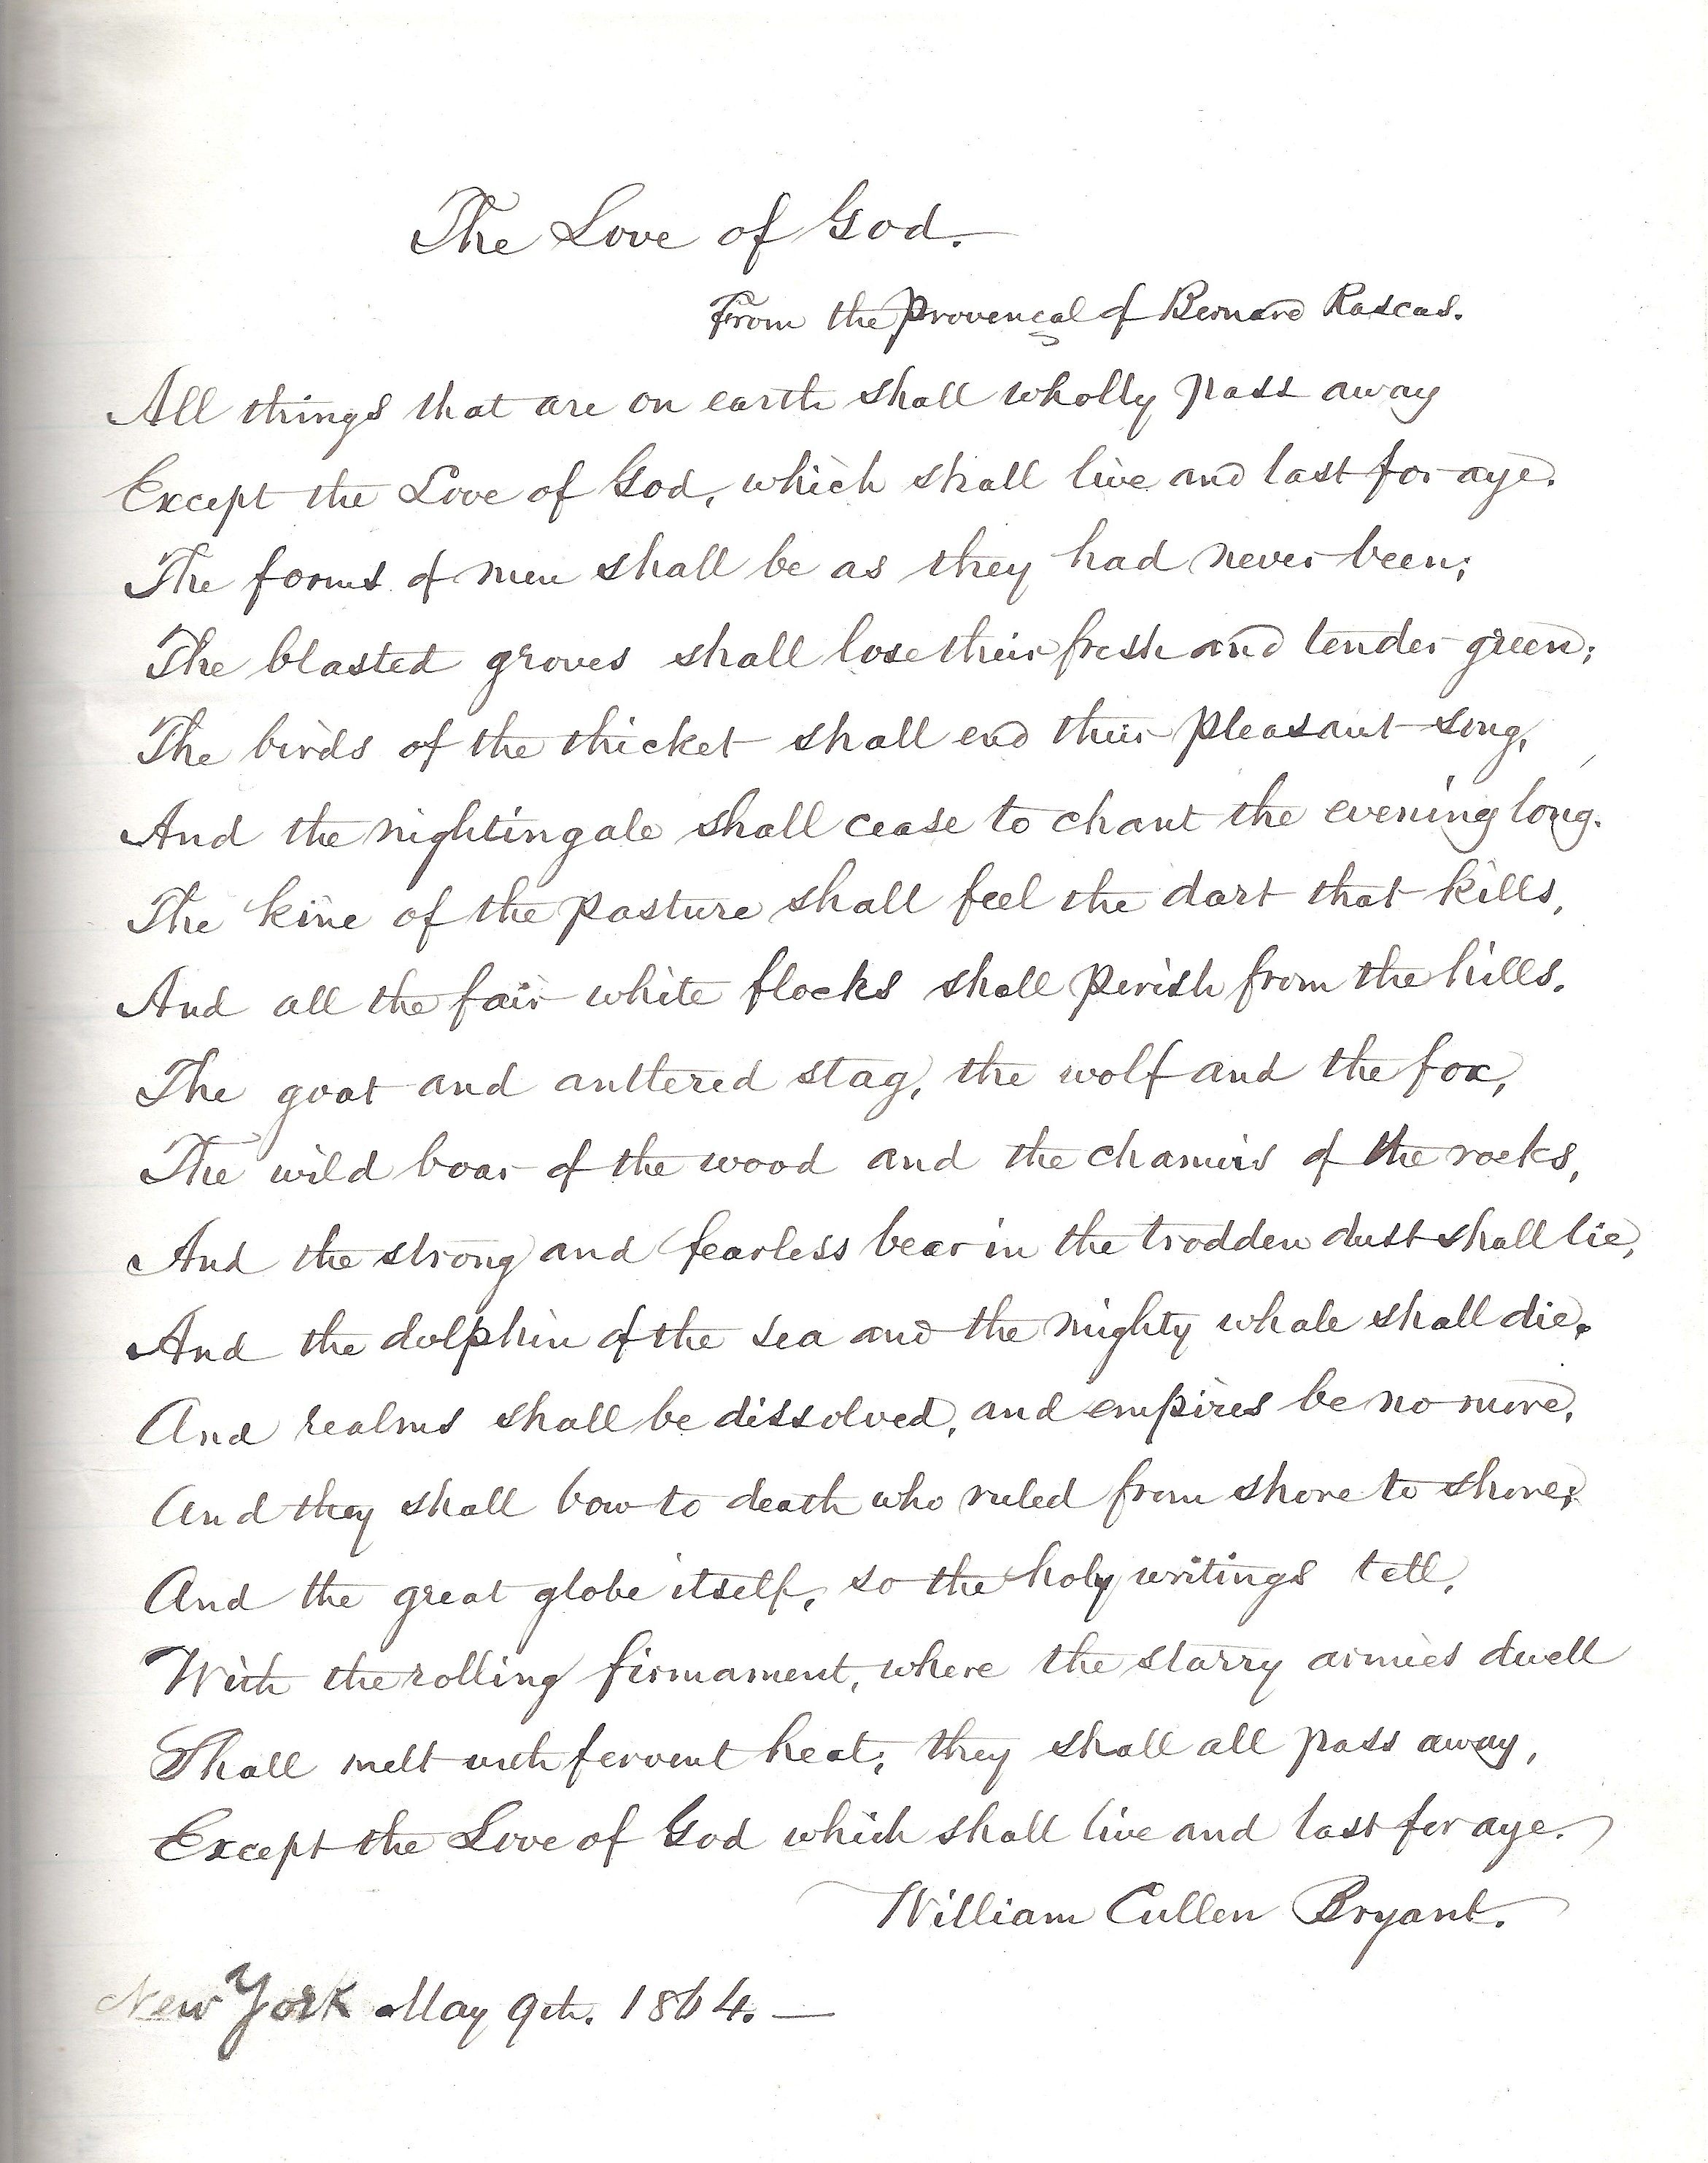 The Love of God.
From the Provençal of Bernard Rascas.
All things that are on earth shall wholly pass away
Except the Love of God, which shall live and last for aye.
The forms of men shall be as they had never been;
The blasted groves shall lose their fresh and tender green;
The birds of the thicket shall end their pleasant song,
And the nightingale shall cease to chant the evening long.
The kine of the pasture shall feel the dart that kills,
And all the fair white flocks shall perish from the hills.
The goat and antlered stag, the wolf and the fox,
The wild boar of the wood and the chamois of the rocks,
And the strong and fearless bear in the trodden dust shall lie,
And the dolphin of the sea and the mighty whale shall die.
And realms shall be dissolved, and empires be no more,
And they shall bow to death who ruled from shore to shore;
And the great globe itself, so the holy writings tell,
With the rolling firmament, where the starry armies dwell
Shall melt with fervent heat; they shall all pass away,
Except the Love of God which shall live and last for aye.
William Cullen Bryant.
New York May 9th. 1864.—